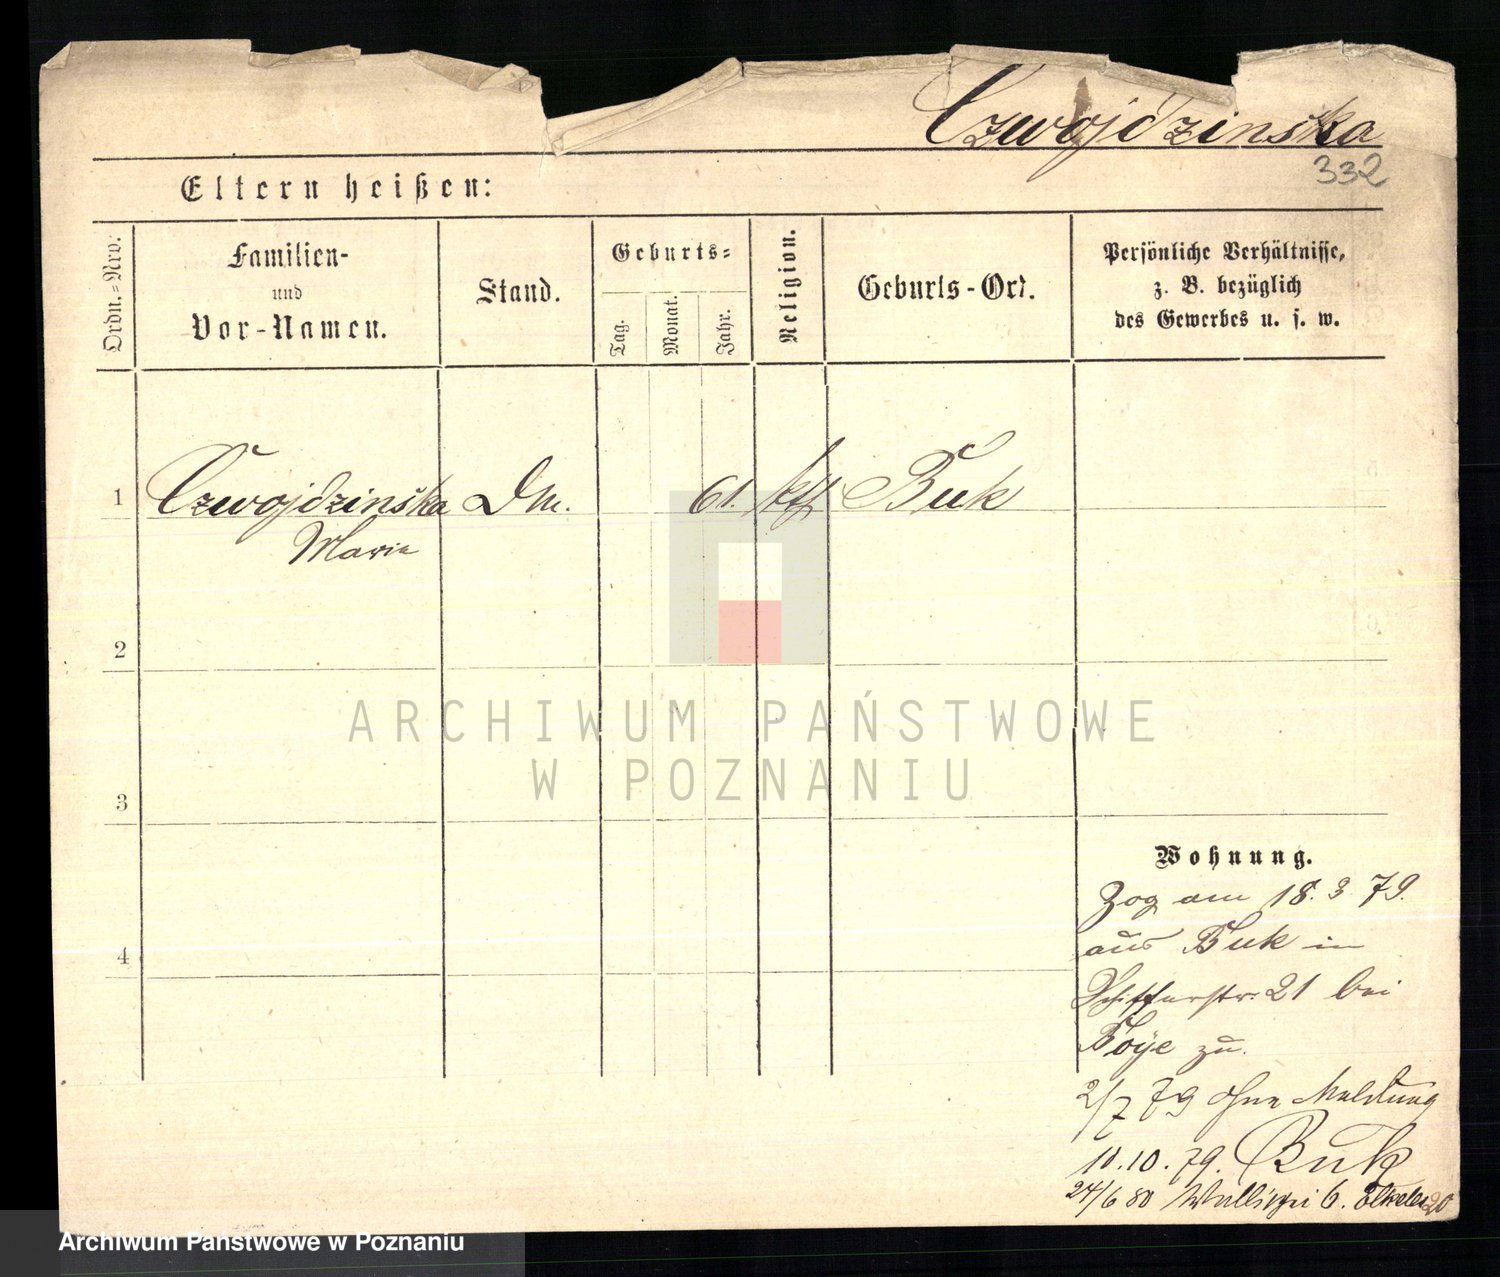 Czwojdzinska
332
Eltern heißen:
Ordn.=Nro.
Familien-
und
Vor-Namen.
Stand.
Geburts=
Tag.
Monat.
Jahr.
Religion.
Geburts-Ort.
Persönliche Verhältnisse,
z. B. bezüglich
des Gewerbes u. s. w.
1
Czwojdzinska
Marie
61.
kth
Buk
2
3
4
Wohnung.
Zog am 18.3.79.
aus Buk in
Schifferstr. 21 bei
zu.
2/7 79 ohne Meldung
11.10.79. Buk
24/6 80 6.
20
ARCHIWUM PAŃSTWOWE
W POZNANIU
Archiwum Państwowe w Poznaniu